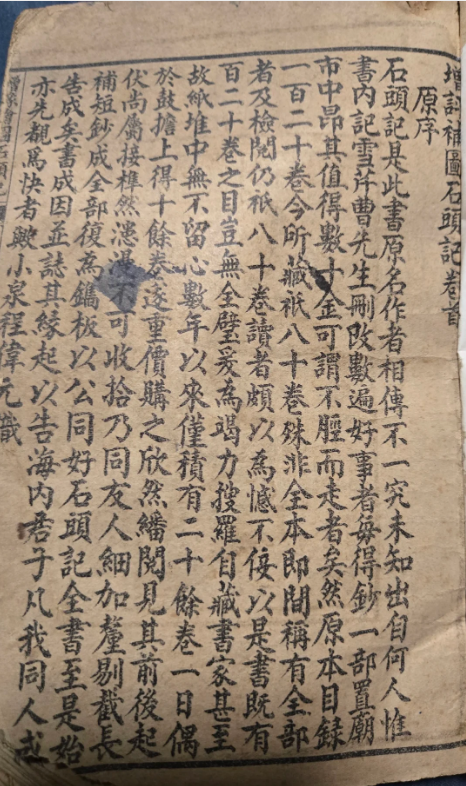 增評補圖石頭記卷首
原序
石頭記是此書原名作者相傳不一究未知出自何人惟
書內記雪芹曹先生刪改數遍好事者每得鈔一部置廟
市中昂其值得數十金可謂不脛而走者矣然原本目錄
一百二十卷今所藏祇八十卷殊非全本即間稱有全部
者及檢閱仍祇八十卷讀者頗以為憾不佞以是書既有
百二十卷之目豈無全璧爰為竭力搜羅自藏書家甚至
故紙堆中無不留心數年以來僅積有二十餘卷一日偶
於鼓擔上得十餘卷遂重價購之欣然繙閱見其前後起
伏尚屬接榫然漶漫不可收拾乃同友人細加釐剔截長
補短鈔成全部復為鐫板以公同好石頭記全書至是始
告成矣書成因並誌其緣起以告海內君子凡我同人或
亦先覩為快者歟小泉程偉元識